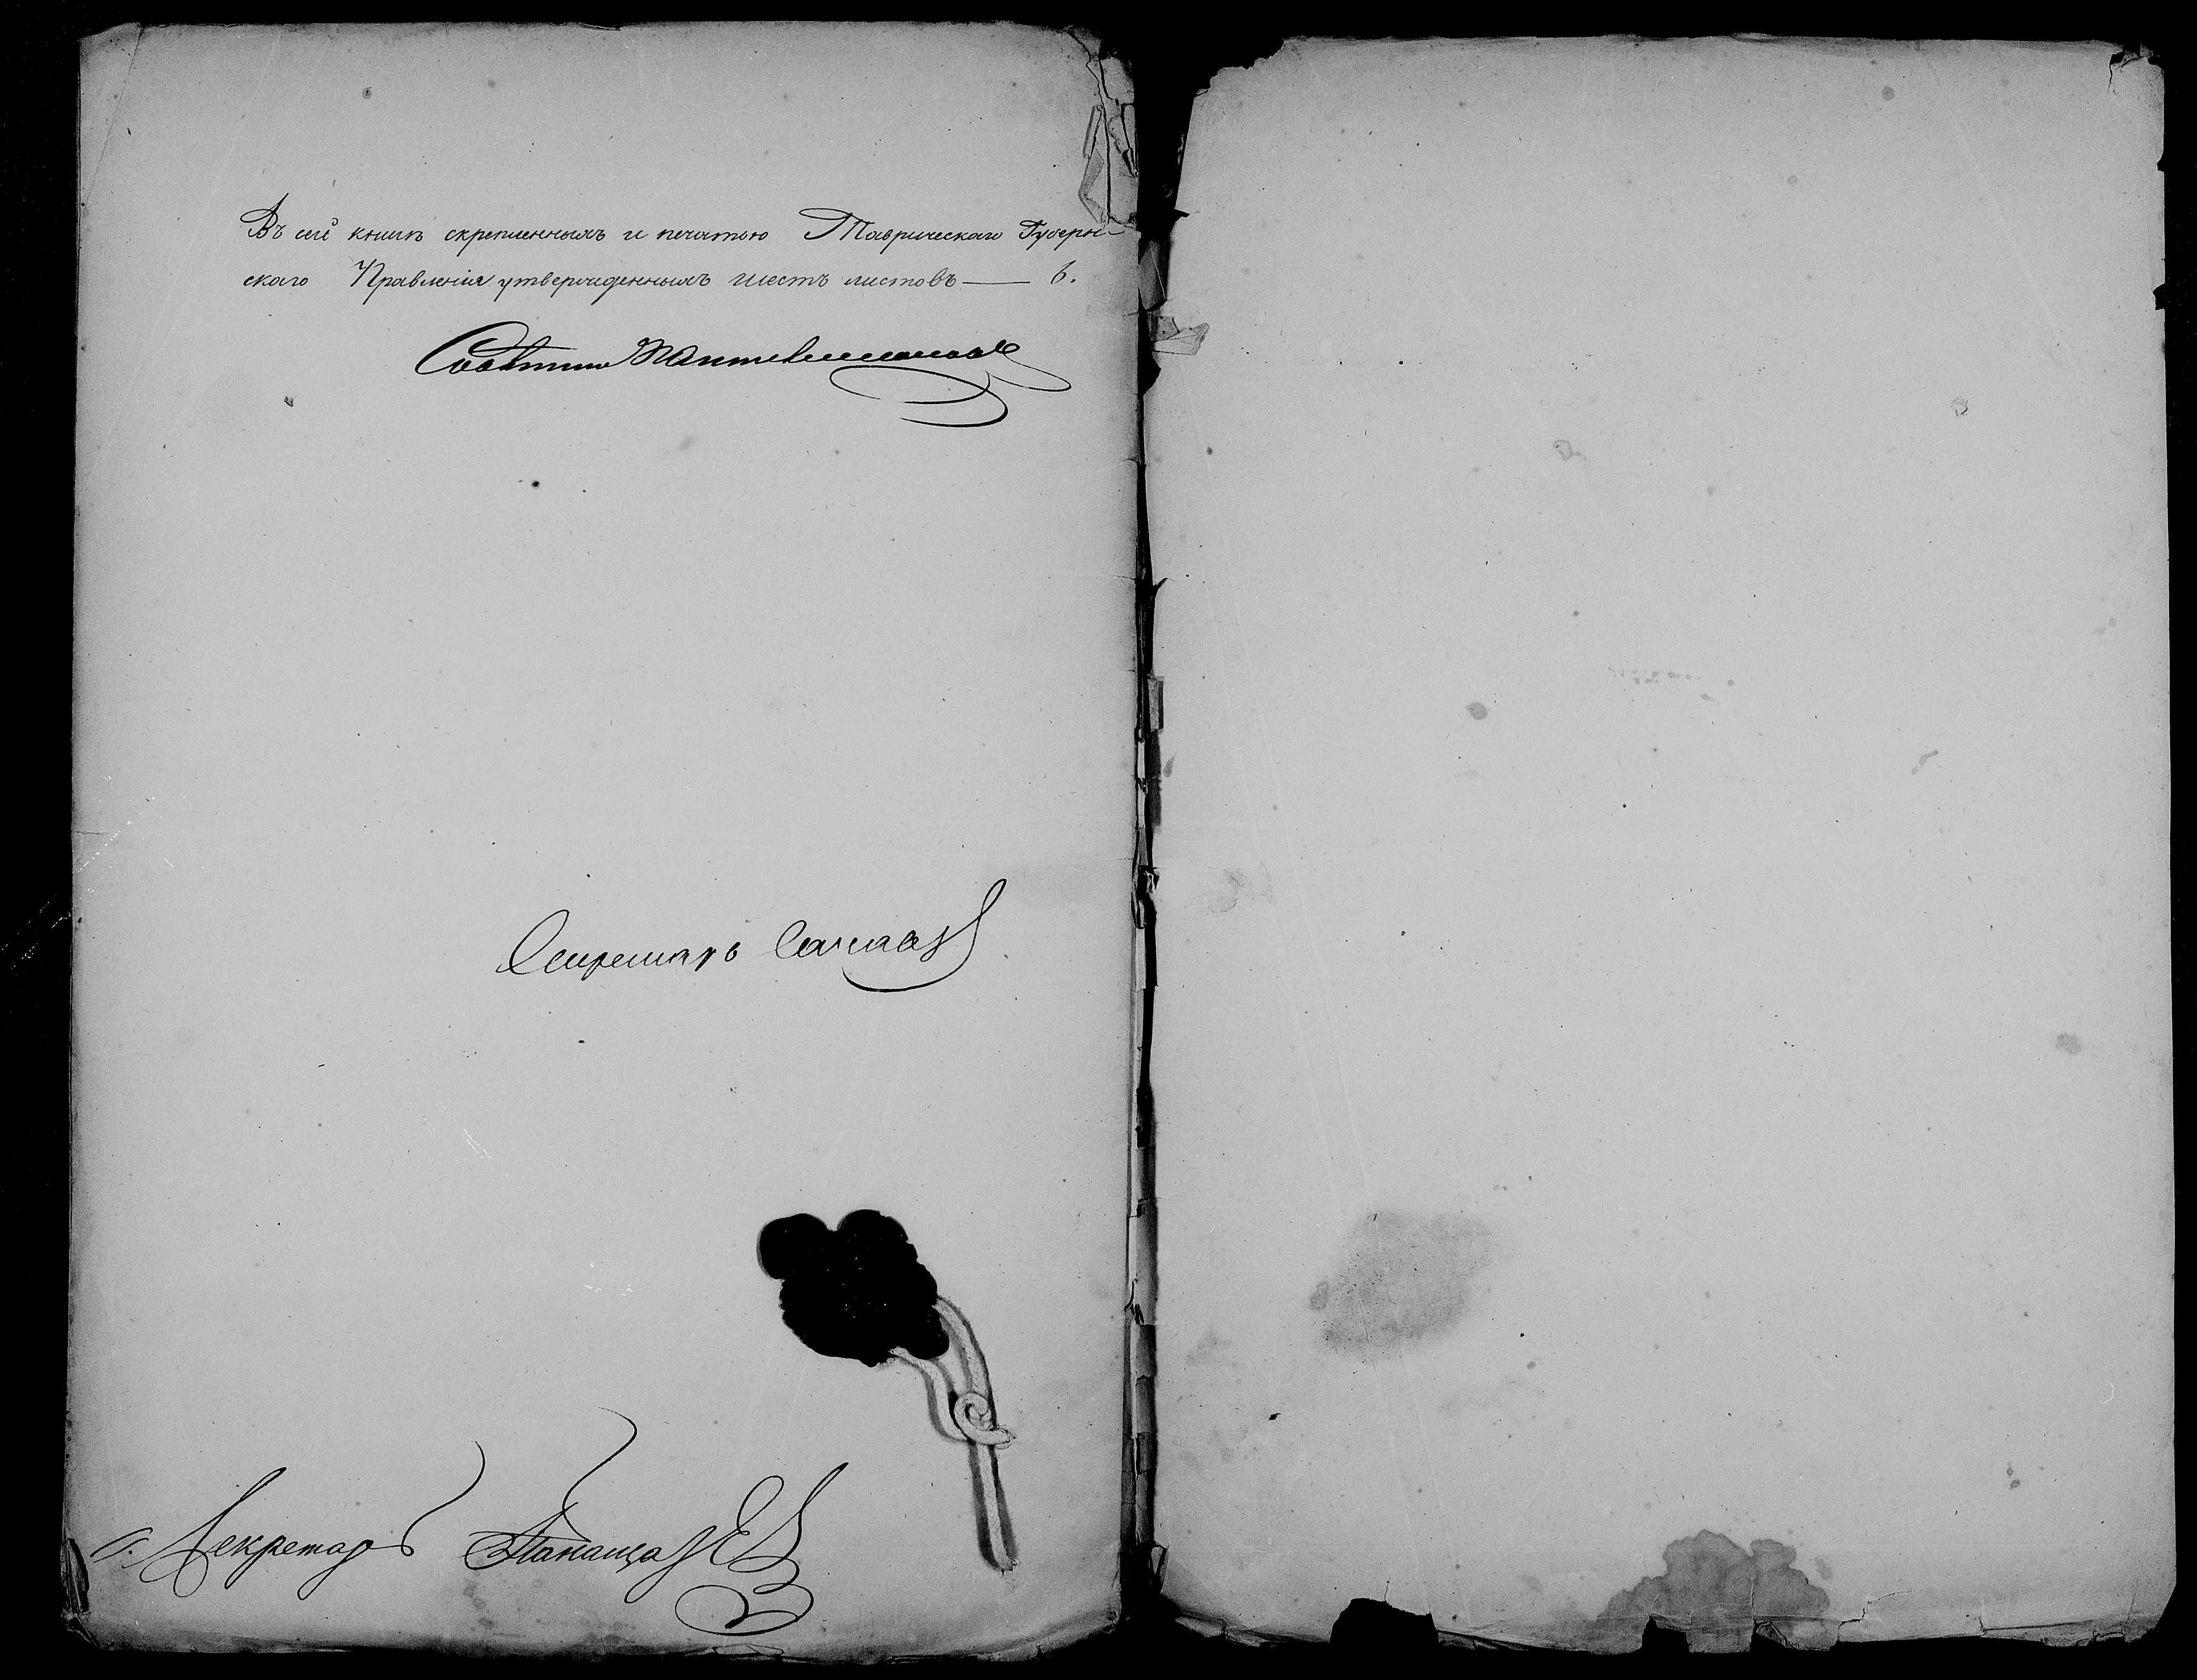 Въ сей книгѣ скрепленныхъ и печатью Таврическаго Губерн-
скаго Правленія утвержденныхъ шесть листовъ — 6.
Совѣтникъ
Секретарь
Секретарь